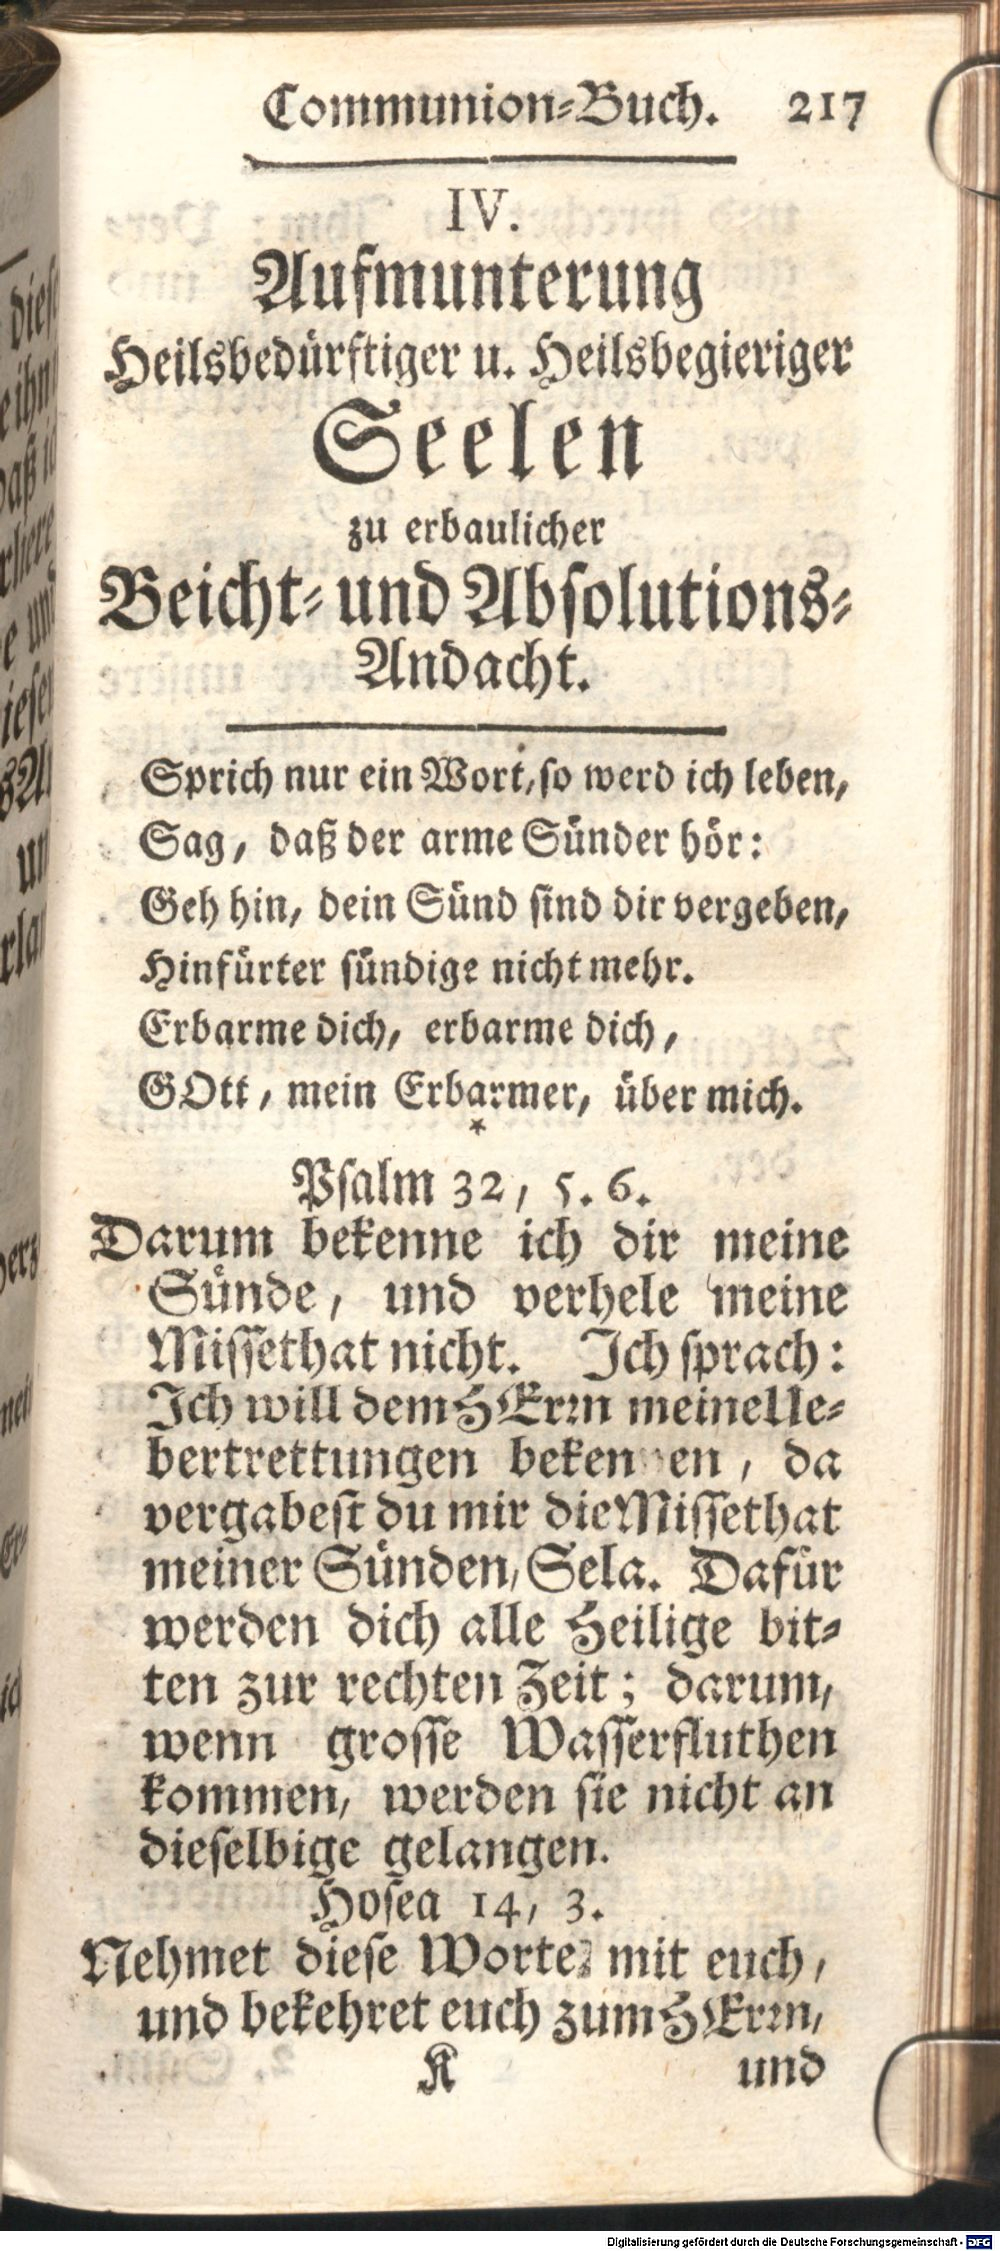 Communion-Buch. 217
IV.
Aufmunterung
Heilsbedürftiger u. Heilsbegieriger
Seelen
zu erbaulicher
Beicht- und Absolutions-
Andacht.
Sprich nur ein Wort, so werd ich leben,
Sag, daß der arme Sünder hör:
Geh hin, dein Sünd sind dir vergeben,
Hinfürter sündige nicht mehr.
Erbarme dich, erbarme dich,
GOtt, mein Erbarmer, über mich.
*
Psalm 32, 5. 6.
Darum bekenne ich dir meine
Sünde, und verhele meine
Missethat nicht. Ich sprach:
Ich will dem HErrn meine Ue-
bertrettungen bekennen, da
vergabest du mir die Missethat
meiner Sünden, Sela. Dafür
werden dich alle Heilige bit-
ten zur rechten Zeit; darum,
wenn grosse Wasserfluthen
kommen, werden sie nicht an
dieselbige gelangen.
Hosea 14, 3.
Nehmet diese Worte mit euch,
und bekehret euch zum HErrn,
K und
Digitalisierung gefördert durch die Deutsche Forschungsgemeinschaft - DFG